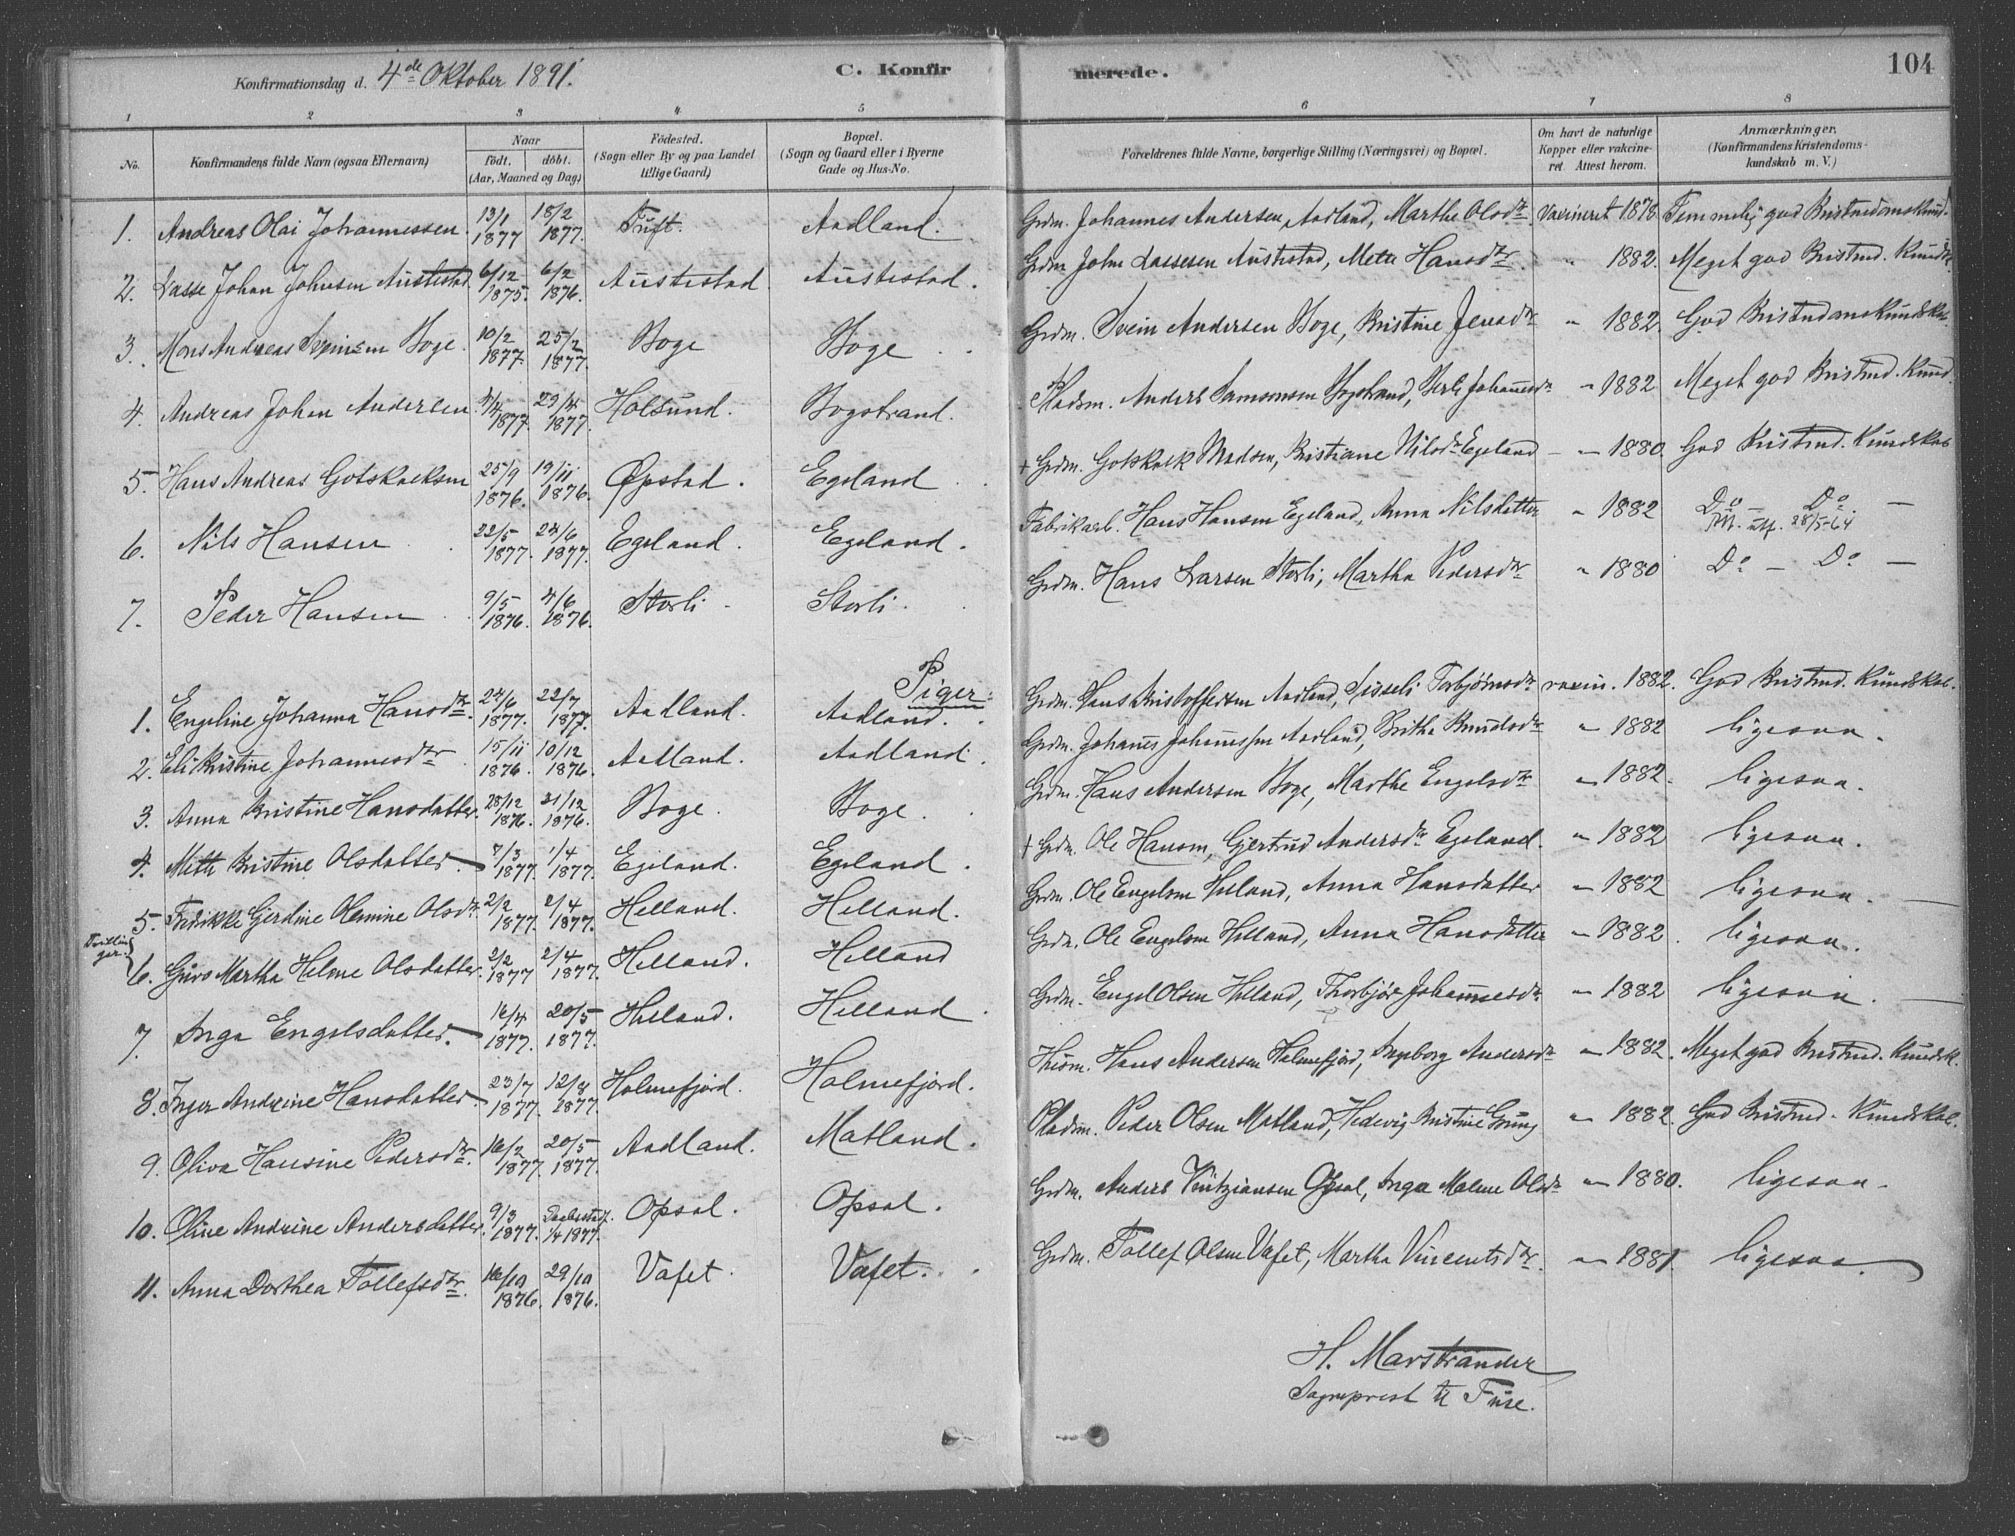 Konfirmationsdag d. 4de Oktober 1891.
C. Konfirmerede.
104
1 2 3 4 5 6 7 8
No.
Konfirmandens fulde Navn (ogsaa Efternavn)
Naar
født. døbt.
(Aar, Maaned og Dag)
Födested.
(Sogn eller By og paa Landet
tillige Gaard)
Bopæl.
(Sogn og Gaard eller i Byerne
Gade og Hus-No.
Forældrenes fulde Navne, borgerlige Stilling (Næringsvei) og Bopæl.
Om havt de naturlige
Kopper eller vakcine-
ret Attest herom.
Anmærkninger.
(Konfirmandens Kristendoms-
kundskab m. V.)
1. Andreas Olai Johannessen. 13/1 1877 18/2 1877. Tuft. Aadland. Grdm. Johannes Andersen Aadland, Marthe Olsdtr. Vaccineret 1878. Temmelig god Kristendomskund.
2. Lasse Johan Johnsen Austestad. 6/12 1875. 6/2 1876. Austestad Austestad. Grdm. John Lassesen Austestad, Mette Hansdtr. " 1882. Meget god Kristend. Kundsk.
3. Mons Andreas Sveinsen Boge. 10/2 1877. 25/2 1877. Boge Boge. Grdm. Svein Andersen Boge, Kristine Jensdtr " 1882. God Kristendomskundskab.
4. Andreas Johan Andersen 4/4 1877. 29/4 1877. Holsund. Bogstrand. Pladsm. Anders Samsonsen Bogstrand, Johannesdr " 1882 Meget god Kristend. Kund.
5. Hans Andreas Gotskalksen 25/9 1876. 19/11 1876. Øpstad. Egeland. + Grdm. Gotskalk Madsen, Kristiane Nilsdr Egeland " 1880. God Kristend. Kundskab
6. Nils Hansen 22/5 1877. 24/6 1877. Egeland. Egeland. Fabrikarb. Hans Hansen Egeland, Anna Nilsdatter " 1882 Do — Do —
utf. 28/5-64
7. Peder Hansen 9/5 1876. 4/6 1876. Storli. Storli. Grdm. Hans Larsen Storli, Martha Pedersdtr " 1880 Do — Do —
Piger.
1. Engeline Johanna Hansdtr. 24/6 1877. 22/7 1877. Aadland. Aadland. Grdm. Hans Kristoffersen Aadland, Sisseli Torbjørnsdtr vaccin. 1882. God Kristend. Kundskab.
2. Eli Kristine Johannesdtr 15/11 1876. 10/12 1876. Aadland. Aadland. Grdm. Johannes Johannessen Aadland, Britha Knudsdtr " 1882 ligesaa.
3. Anna Kristine Hansdatter. 28/12 1876. 31/12 1876. Boge. Boge. Grdm. Hans Andersen Boge, Marthe Engelsdtr " 1882. ligesaa.
4. Mette Kristine Olsdatter. 7/3 1877. 1/4 1877. Egeland. Egeland. + Grdm. Ole Hansen, Gjertrud Andersdr Egeland. " 1882 ligesaa.
5. Fredrikke Gjerdine Olemine Olsdtr 2/2 1877. 2/4 1877. Helland. Helland. Grdm. Ole Engelsen Helland, Anna Hansdatter " 1882 ligesaa.
Tvillinger.
6. Guro Martha Helene Olsdatter. 2/2 1877 2/4 1877. Helland. Helland Grdm. Ole Engelsen Helland, Anna Hansdatter " 1882. ligesaa.
7. Inga Engelsdatter. 16/4 1877. 20/5 1877. Helland. Helland. Grdm. Engel Olsen Helland, Thorbjør Johannesdr. " 1882 ligesaa.
8. Inger Andrine Hansdatter. 23/7 1877. 12/8 1877. Holmefjord. Holmefjord. Husm. Hans Andersen Holmefjord, Ingeborg Andersdtr " 1882. Meget god Kristend. Kundsk.
9. Oliva Hansine Pedersdtr. 16/2 1877. 20/5 1877. Aadland. Matland. Pladsm. Peder Olsen Matland, Hedevig Kristine Grung " 1882. God Kristend. Kundskab.
10. Oline Andrine Andersdatter. 9/3 1877. Daabsattest. 1/4 1877. Opsal. Opsal. Grdm. Anders Opsal, Inga Malene Olsdr " 1880. ligesaa.
11. Anna Dorthea Tollefsdtr. 16/10 1876. 29/10 1876. Vafet. Vafet. Grdm. Tollef Olsen Vafet, Martha Vincentsdtr. " 1881. ligesaa.
H. Marstrander
Sogneprest til Fuse.